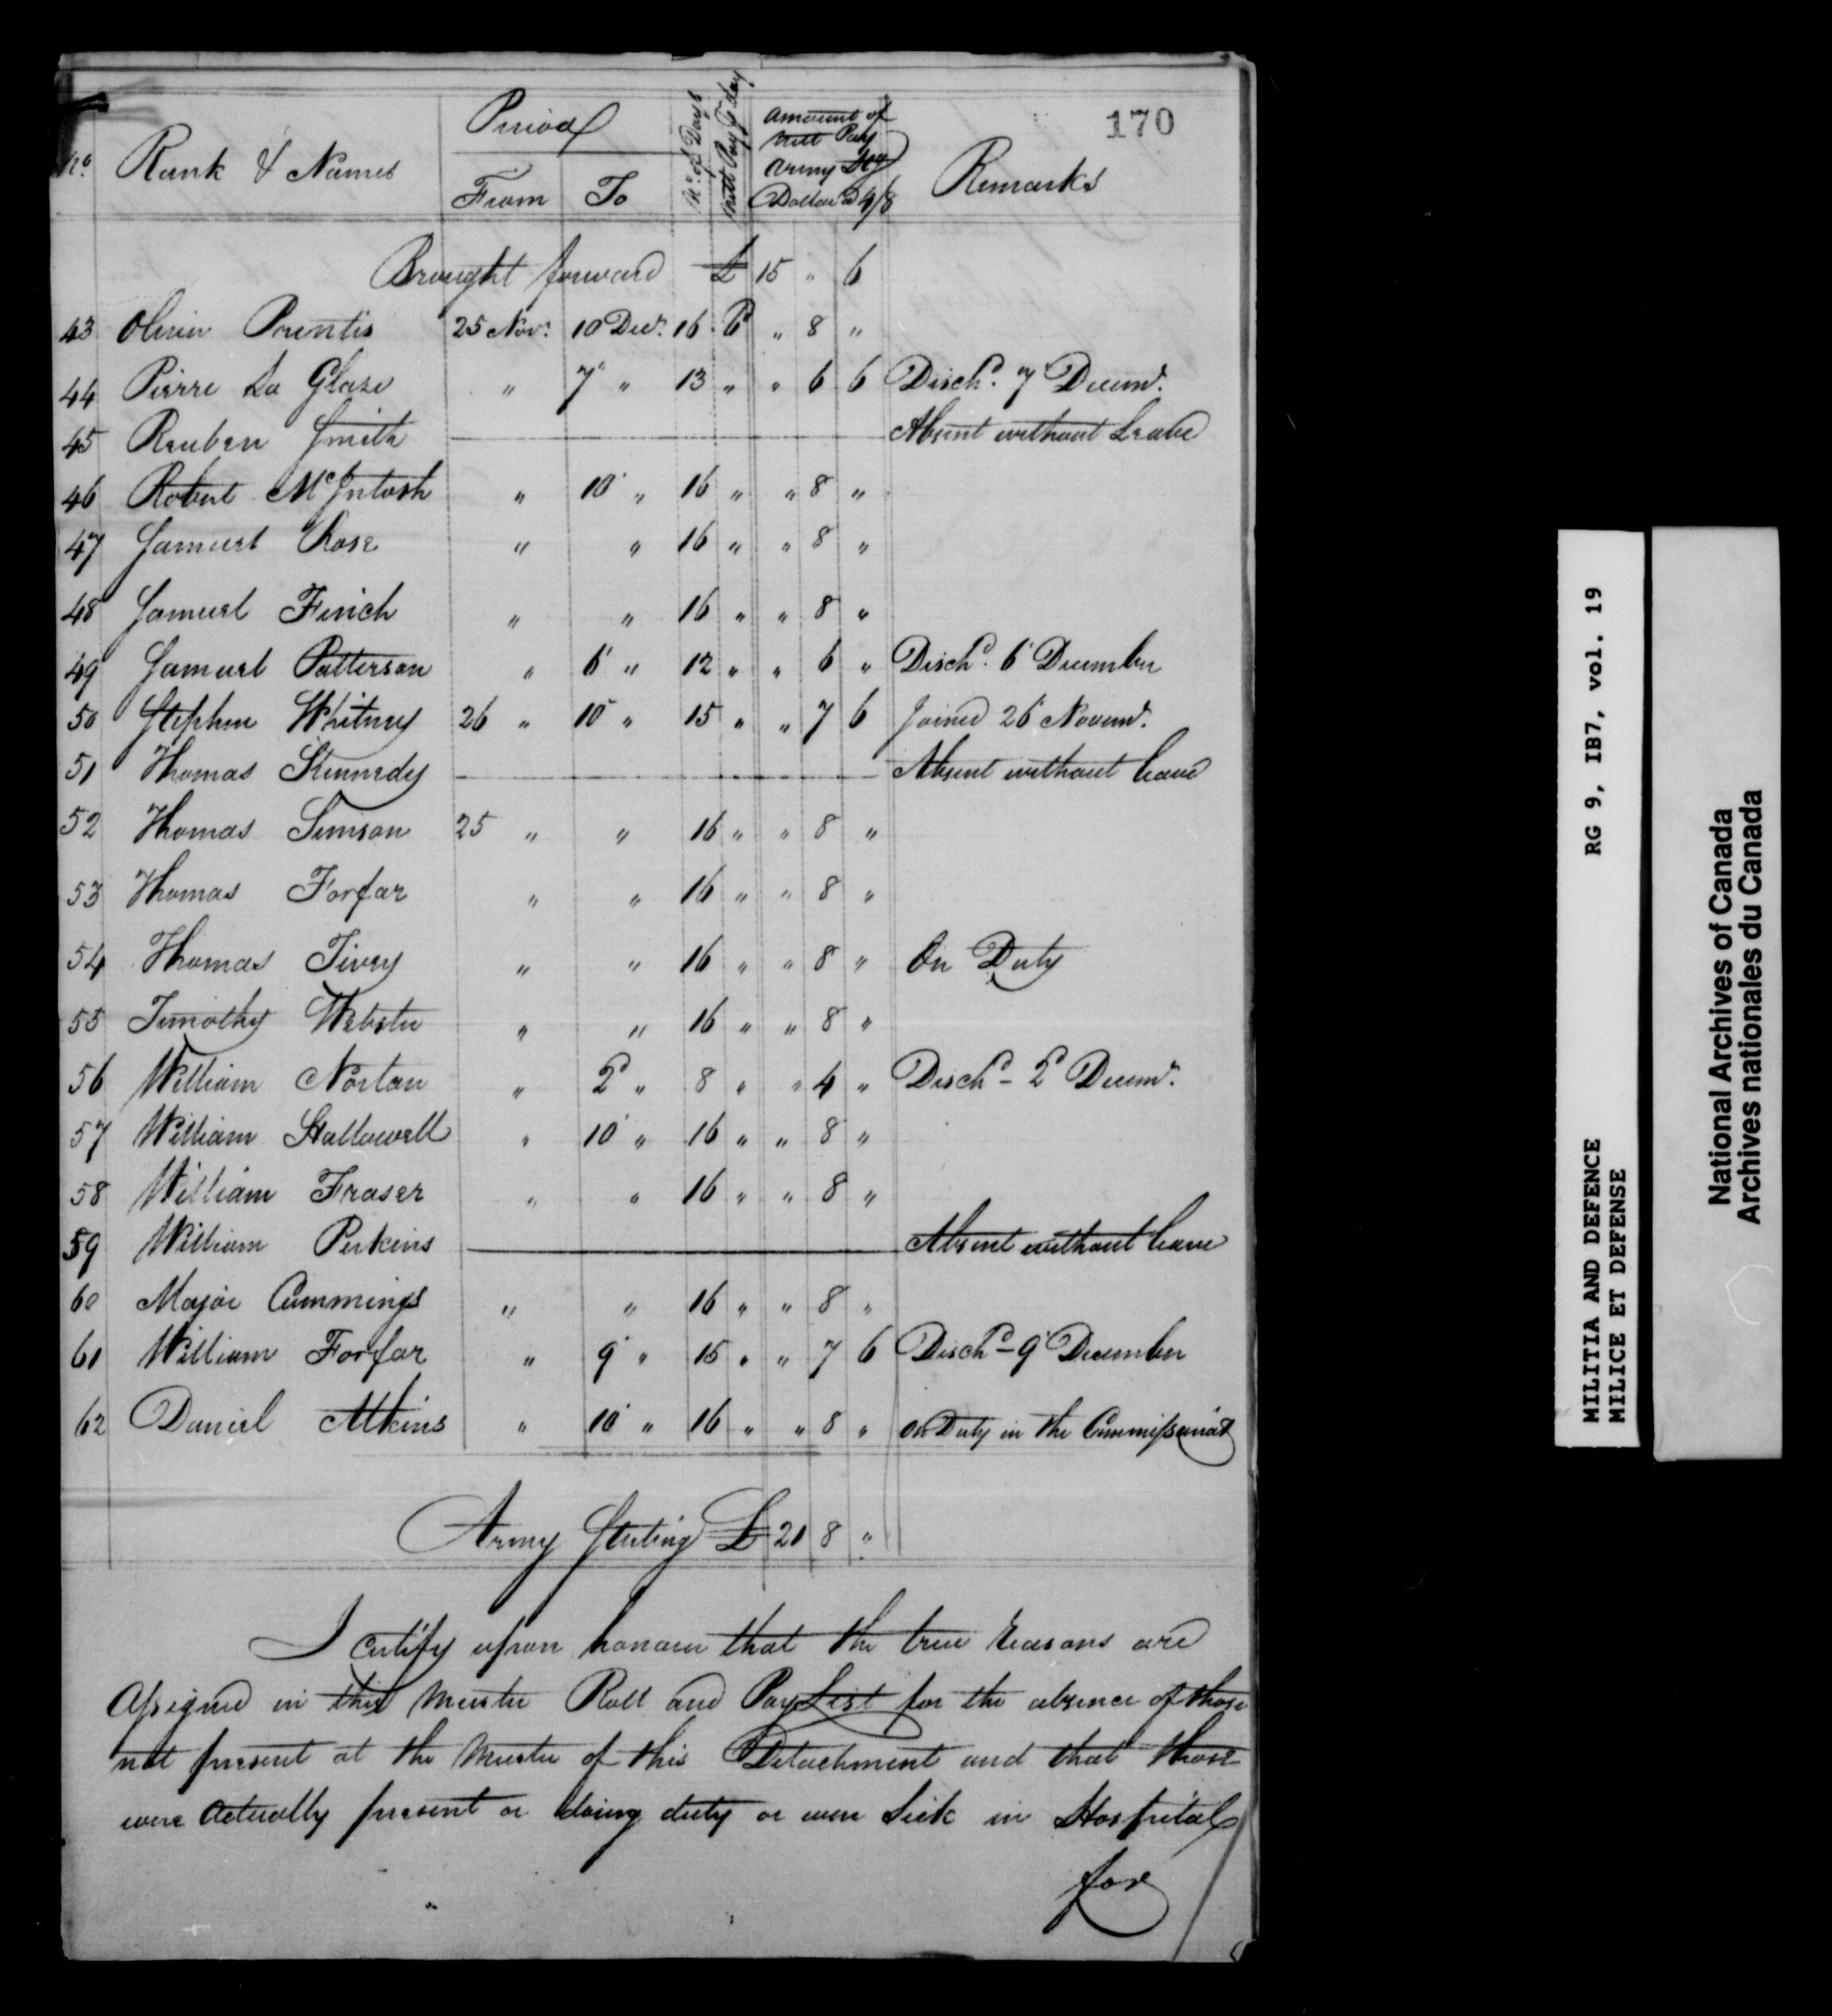 170
No. Rank & Names Period From To No. of Days Nett Pay P day Amount of Nett Pay Army Stg Dollar @ 4/8 Remarks
Brought forward £ 15 " 6
43 Olivier Prentis 25 Novr. 10 Decr. 16 6d " 8 "
44 Pierre La Glaze " 7 " 13 " " 6 6 Dischd. 7 Decemr.
45 Reuben Smith Absent without Leave
46 Robert McIntosh " 10 " 16 " " 8 "
47 Samuel Rose " " 16 " " 8 "
48 Samuel Finch " " 16 " " 8 "
49 Samuel Patterson " 6 " 12 " " 6 " Dischd. 6 December
50 Stephen Whitney 26 " 10 " 15 " " 7 6 Joined 26 Novemr.
51 Thomas Kennedy Absent without leave
52 Thomas Simson 25 " " 16 " " 8 "
53 Thomas Forfar " " 16 " " 8 "
54 Thomas Tivey " " 16 " " 8 " On Duty
55 Timothy Webster " " 16 " " 8 "
56 William Norton " 2d " 8 " " 4 " Dischd - 2d Decemr.
57 William Hallowell " 10 " 16 " " 8 "
58 William Fraser " " 16 " " 8 "
59 William Perkins Absent without leave
60 Major Cummings " " 16 " " 8 "
61 William Forfar " 9 " 15 " " 7 6 Dischd - 9 December
62 Daniel Atkins " 10 " 16 " " 8 " On Duty in the Commissariat
Army Sterling £ 21 8 "
I certify upon honour that the true reasons are
Assigned in this Muster Roll and Pay List for the absence of those
not present at the Muster of this Detachment and that those
were actually present or doing duty or were Sick in Hospital
for
MILITIA AND DEFENCE RG 9, IB7, vol. 19
MILICE ET DEFENSE
National Archives of Canada
Archives nationales du Canada